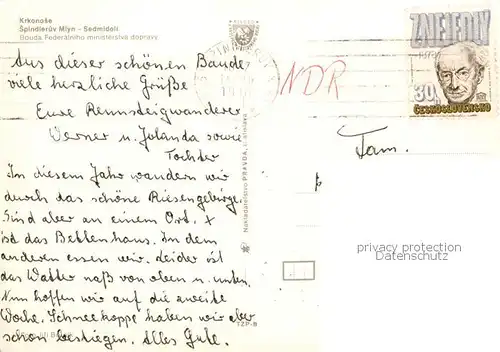 Krkonoše
Špindlerův Mlýn - Sedmidolí
Bouda Federálního ministerstva dopravy
Aus dieser schönen Baude
viele herzliche Grüße
Eure Rennsteigwanderer
Werner u. Jolanda sowie
Tochter
In diesem Jahr wandern wir
durch das schöne Riesengebirge.
Sind aber an einem Ort. x
ist das Bettenhaus. In dem
anderen essen wir. Leider ist
das Wetter naß von oben u. unten.
Nun hoffen wir auf die zweite
Woche. Schneekoppe haben wir aber
schon bestiegen. Alles Gute.
Nakladatelstvo PRAVDA, Bratislava
TZP-B
NDR
ZNEJEDLÝ
30h
ČESKOSLOVENSKO
Fam.
privacy protection
Datenschutz